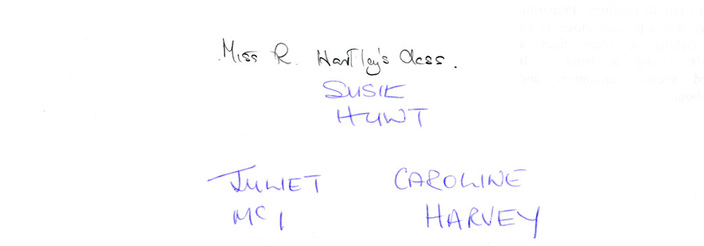 Miss R. Hartley's Class.
SUSIE
HUNT
JULIET CAROLINE
HARVEY